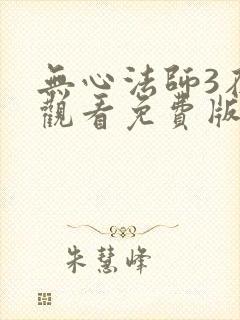 無心法師3在
觀看免費版
朱慧峰